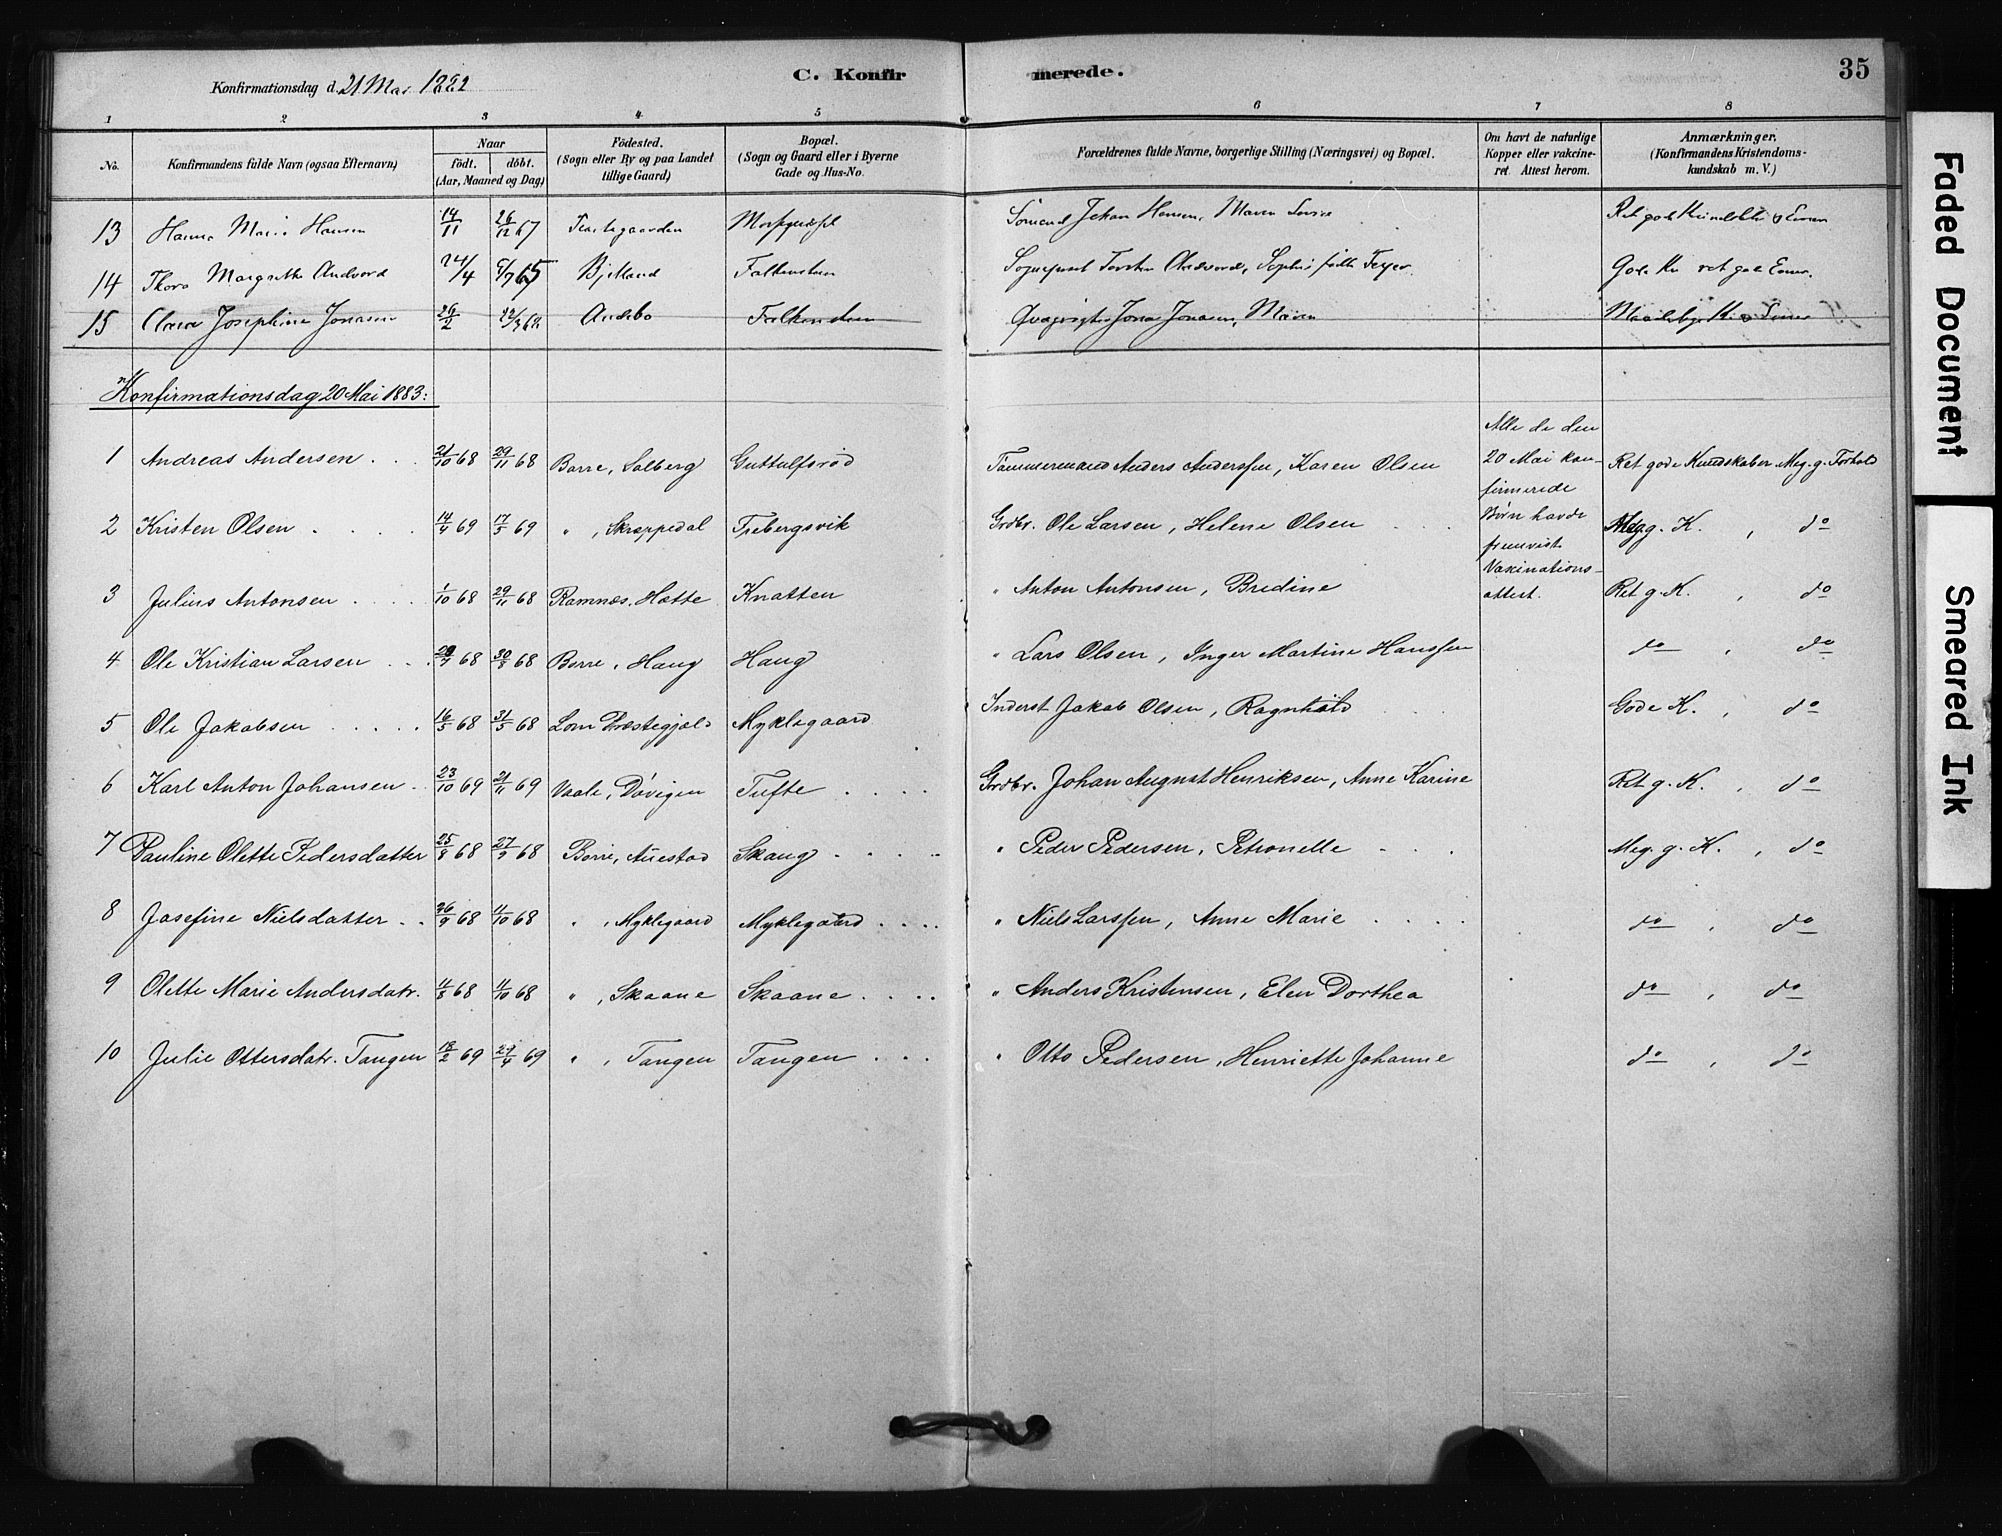 Konfirmationsdag d. 21 Mai 1882
C. Konfirmerede.
35
1 2 3 4 5 6 7 8
No. Konfirmandens fulde Navn (ogsaa Efternavn) Naar født. døbt. (Aar, Maaned og Dag) Fødested. (Sogn eller By og paa Landet tillige Gaard) Bopæl. (Sogn og Gaard eller i Byerne Gade og Hus-No. Forældrenes fulde Navne, borgerlige Stilling (Næringsvei) og Bopæl. Om havt de naturlige Kopper eller vakcineret. Attest herom. Anmærkninger. (Konfirmandens Kristendomskundskab m. V.)
13 Hanna Marie Hansen 14/11 26/12 67 Johan Hansen, Maren
14 Thora Margrethe Andvord 24/4 65 Bjelland Falkensten Sogneprest Andvord, Sophie født
15 Josephine Jonasen 26/2 Andebo Falkensten Jonas Jonasen, Maren
Konfirmationsdag 20 Mai 1883:
Alle de den 20 Mai konfirmerede Børn havde fremvist Vakinationsattest.
1 Andreas Andersen . . 21/10 68 29/11 68 Borre, Solberg Guttulfsrød Tømmermand Anders Anderssen, Karen Olsen Ret gode Kundskaber. Meg. g. Forhold
2 Kristen Olsen . . . 14/4 69 17/5 69 " , Skrappedal Fribergsvik Grdbr. Ole Larsen, Helene Olsen Meg g. K. , do
3 Julius Antonsen . . . 1/10 68 29/11 68 Ramnæs, Hotte Knatten " Anton Antonsen, Bredine Ret g. K. , do
4 Ole Kristian Larsen . . 68 30/8 68 Borre, Haug Haug " Lars Olsen, Inger Martine Hanssen do , do
5 Ole Jakobsen . . . . . 16/5 68 31/5 68 Lom Præstegjæld Myklegaard Inderst Jakob Olsen, Ragnhild Gode K. , do
6 Karl Anton Johansen . 23/10 69 21/11 69 Vaale, Døvigen Tufte . . . . Grdbr. Johan August Henriksen, Anne Karine Ret g. K. , do
7 Pauline Olette Pedersdatter 25/8 68 27/9 68 Borre, Auestad Skaug . . . . " Peder Pedersen, Petronelle . . . Meg. g. K. , do
8 Josefine Nielsdatter . . 26/9 68 11/10 68 " , Myklegaard Myklegaard . . . . " Niels Larssen, Anne Marie . . . . do , do
9 Olette Marie Andersdatr. 11/8 68 11/10 68 " , Skaane Skaane . . . . " Anders Kristensen, Elen Dorthea do , do
10 Julie Ottersdatr. Tangen 18/2 69 29/4 69 " , Tangen Tangen . . . " Otto Pedersen, Henriette Johanne do , do
Faded Document
Smeared Ink